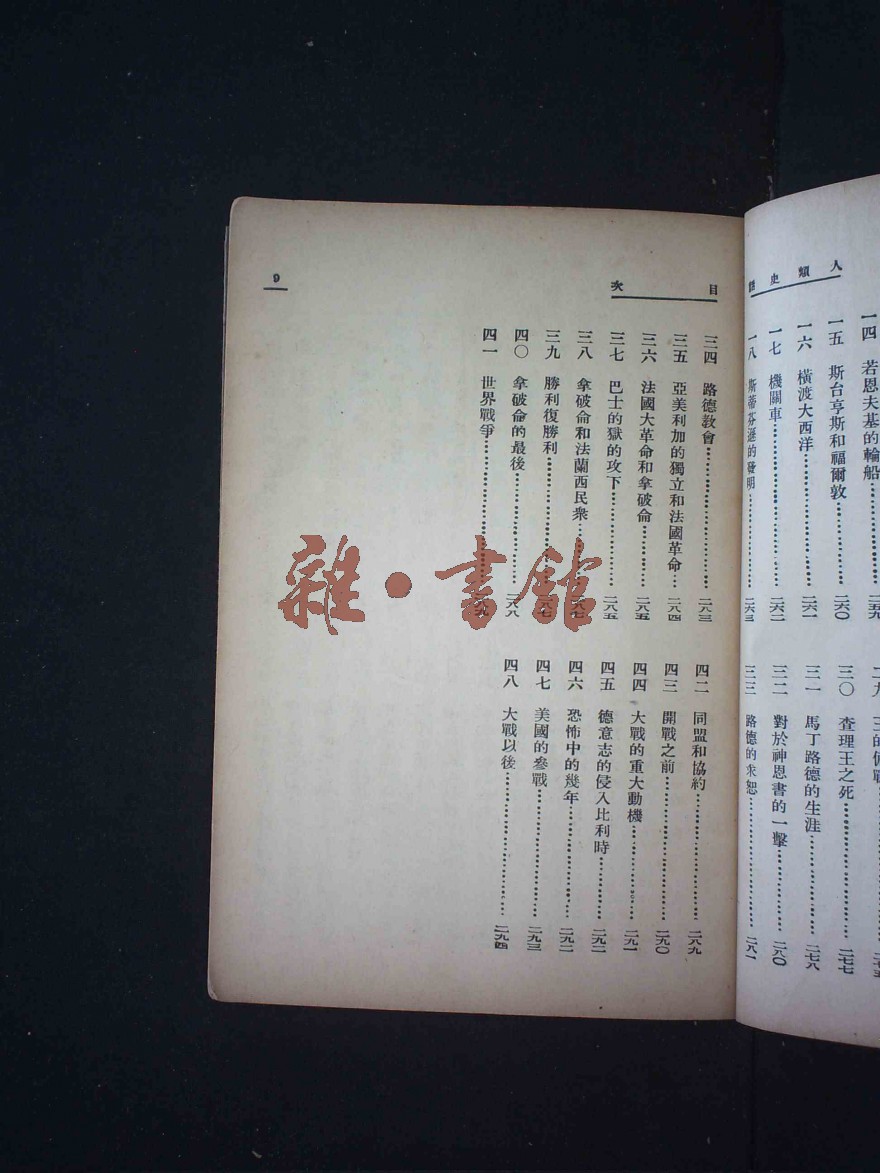 人類史話
一四　若恩夫基的輪船…………二五九
一五　斯台亨斯和福爾敦…………二六〇
一六　橫渡大西洋…………二六一
一七　機關車…………二六二
一八　斯蒂芬遜的發明…………二六三
三〇　查理王之死…………二七七
三一　馬丁路德的生涯…………二七八
三二　對於神恩書的一擊…………二八〇
三三　路德的求恕…………二八一
目次
9
三四　路德教會…………二八三
三五　亞美利加的獨立和法國革命…二八四
三六　法國大革命和拿破侖…………二八五
三七　巴士的獄的攻下…………二八五
三八　拿破侖和法蘭西民衆…………二八七
三九　勝利復勝利…………二八七
四〇　拿破侖的最後…………二八八
四一　世界戰爭…………
四二　同盟和協約…………二八九
四三　開戰之前…………二九〇
四四　大戰的重大動機…………二九一
四五　德意志的侵入比利時…………二九二
四六　恐怖中的幾年…………二九二
四七　美國的參戰…………二九三
四八　大戰以後…………二九四
雜·書館